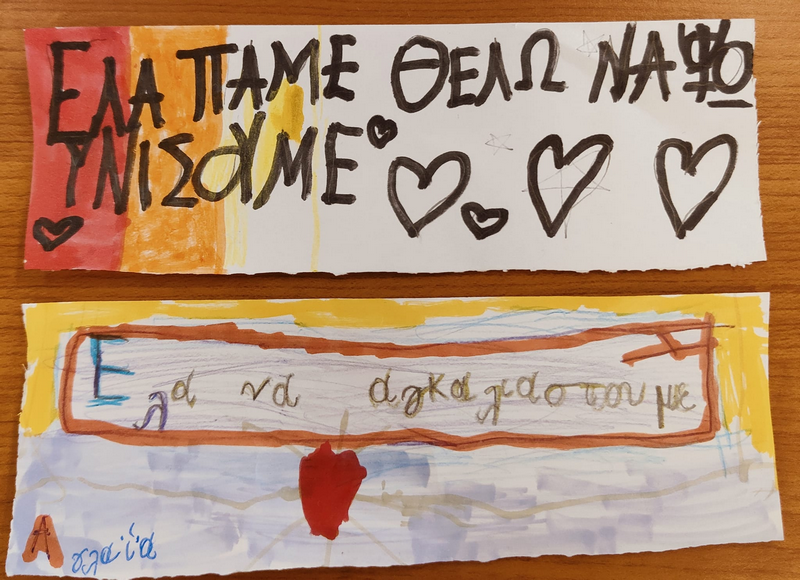 ΕΛΑ ΠΑΜΕ ΘΕΛΩ ΝΑ ΨΩ
ΥΝΙΣΟΥΜΕ
Ελα να αγκαλιαστουμε
Αγλαΐα